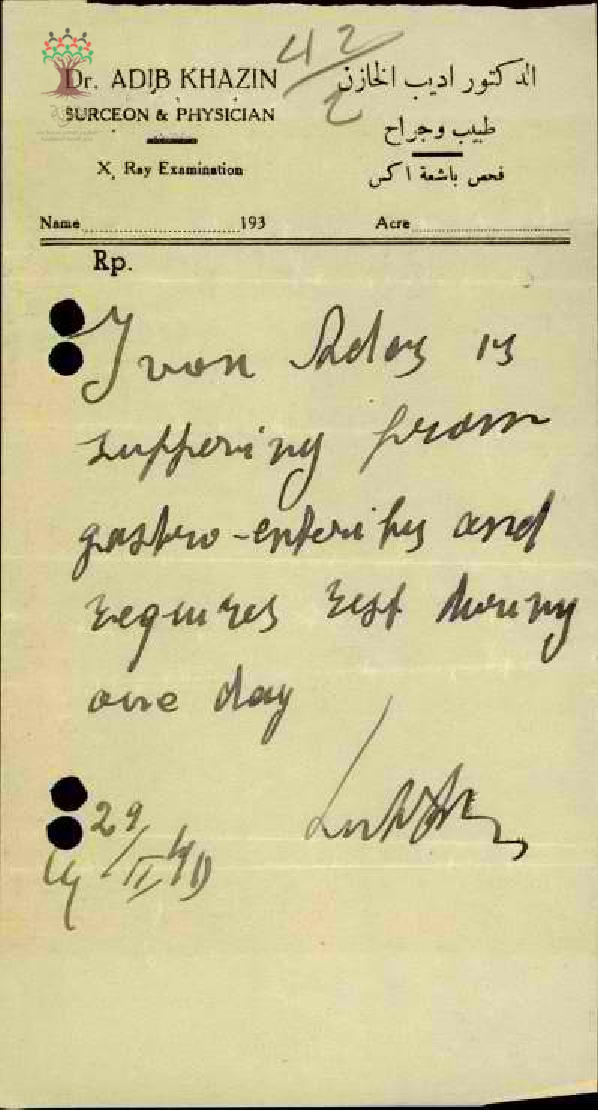 42
2
Dr. ADIB KHAZIN
الدكتور اديب الخازن
SURCEON & PHYSICIAN
طبيب وجراح
X, Ray Examination
فحص باشعة اكس
Name 193 Acre
Rp.
Yvon is
suffering from
gastro-enteritis and
requires rest during
one day
29/II 40